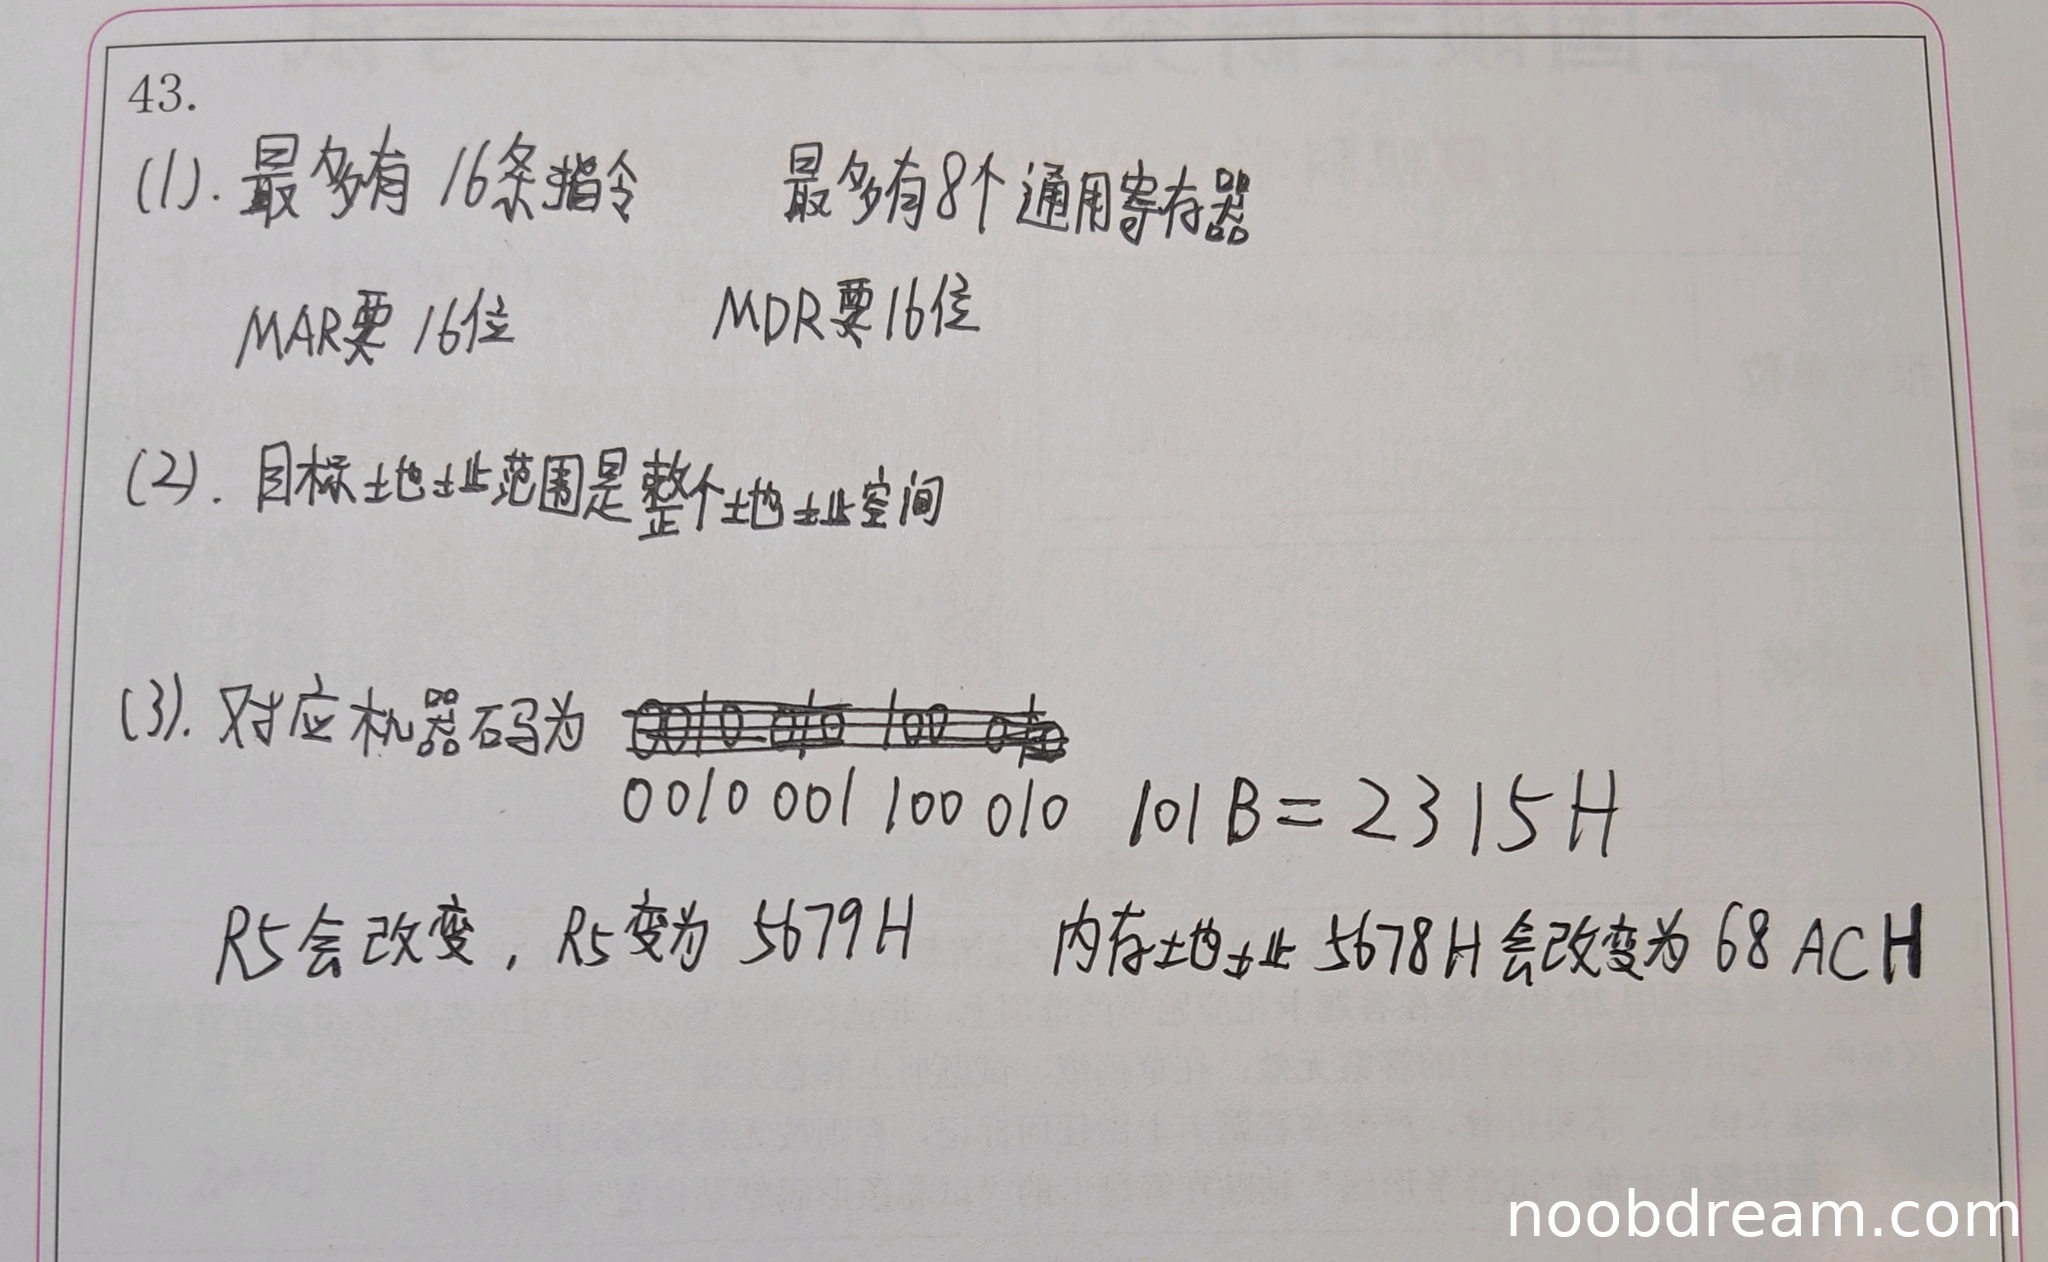 43.
(1). 最多有 16条指令 最多有8个通用寄存器
MAR要 16位 MDR要16位
(2). 目标地址范围是整个地址空间
(3). 对应机器码为
0010 001 100 010 101 B = 2315H
R5会改变, R5变为 5679H 内存地址 5678H会改变为 68ACH
noobdream.com